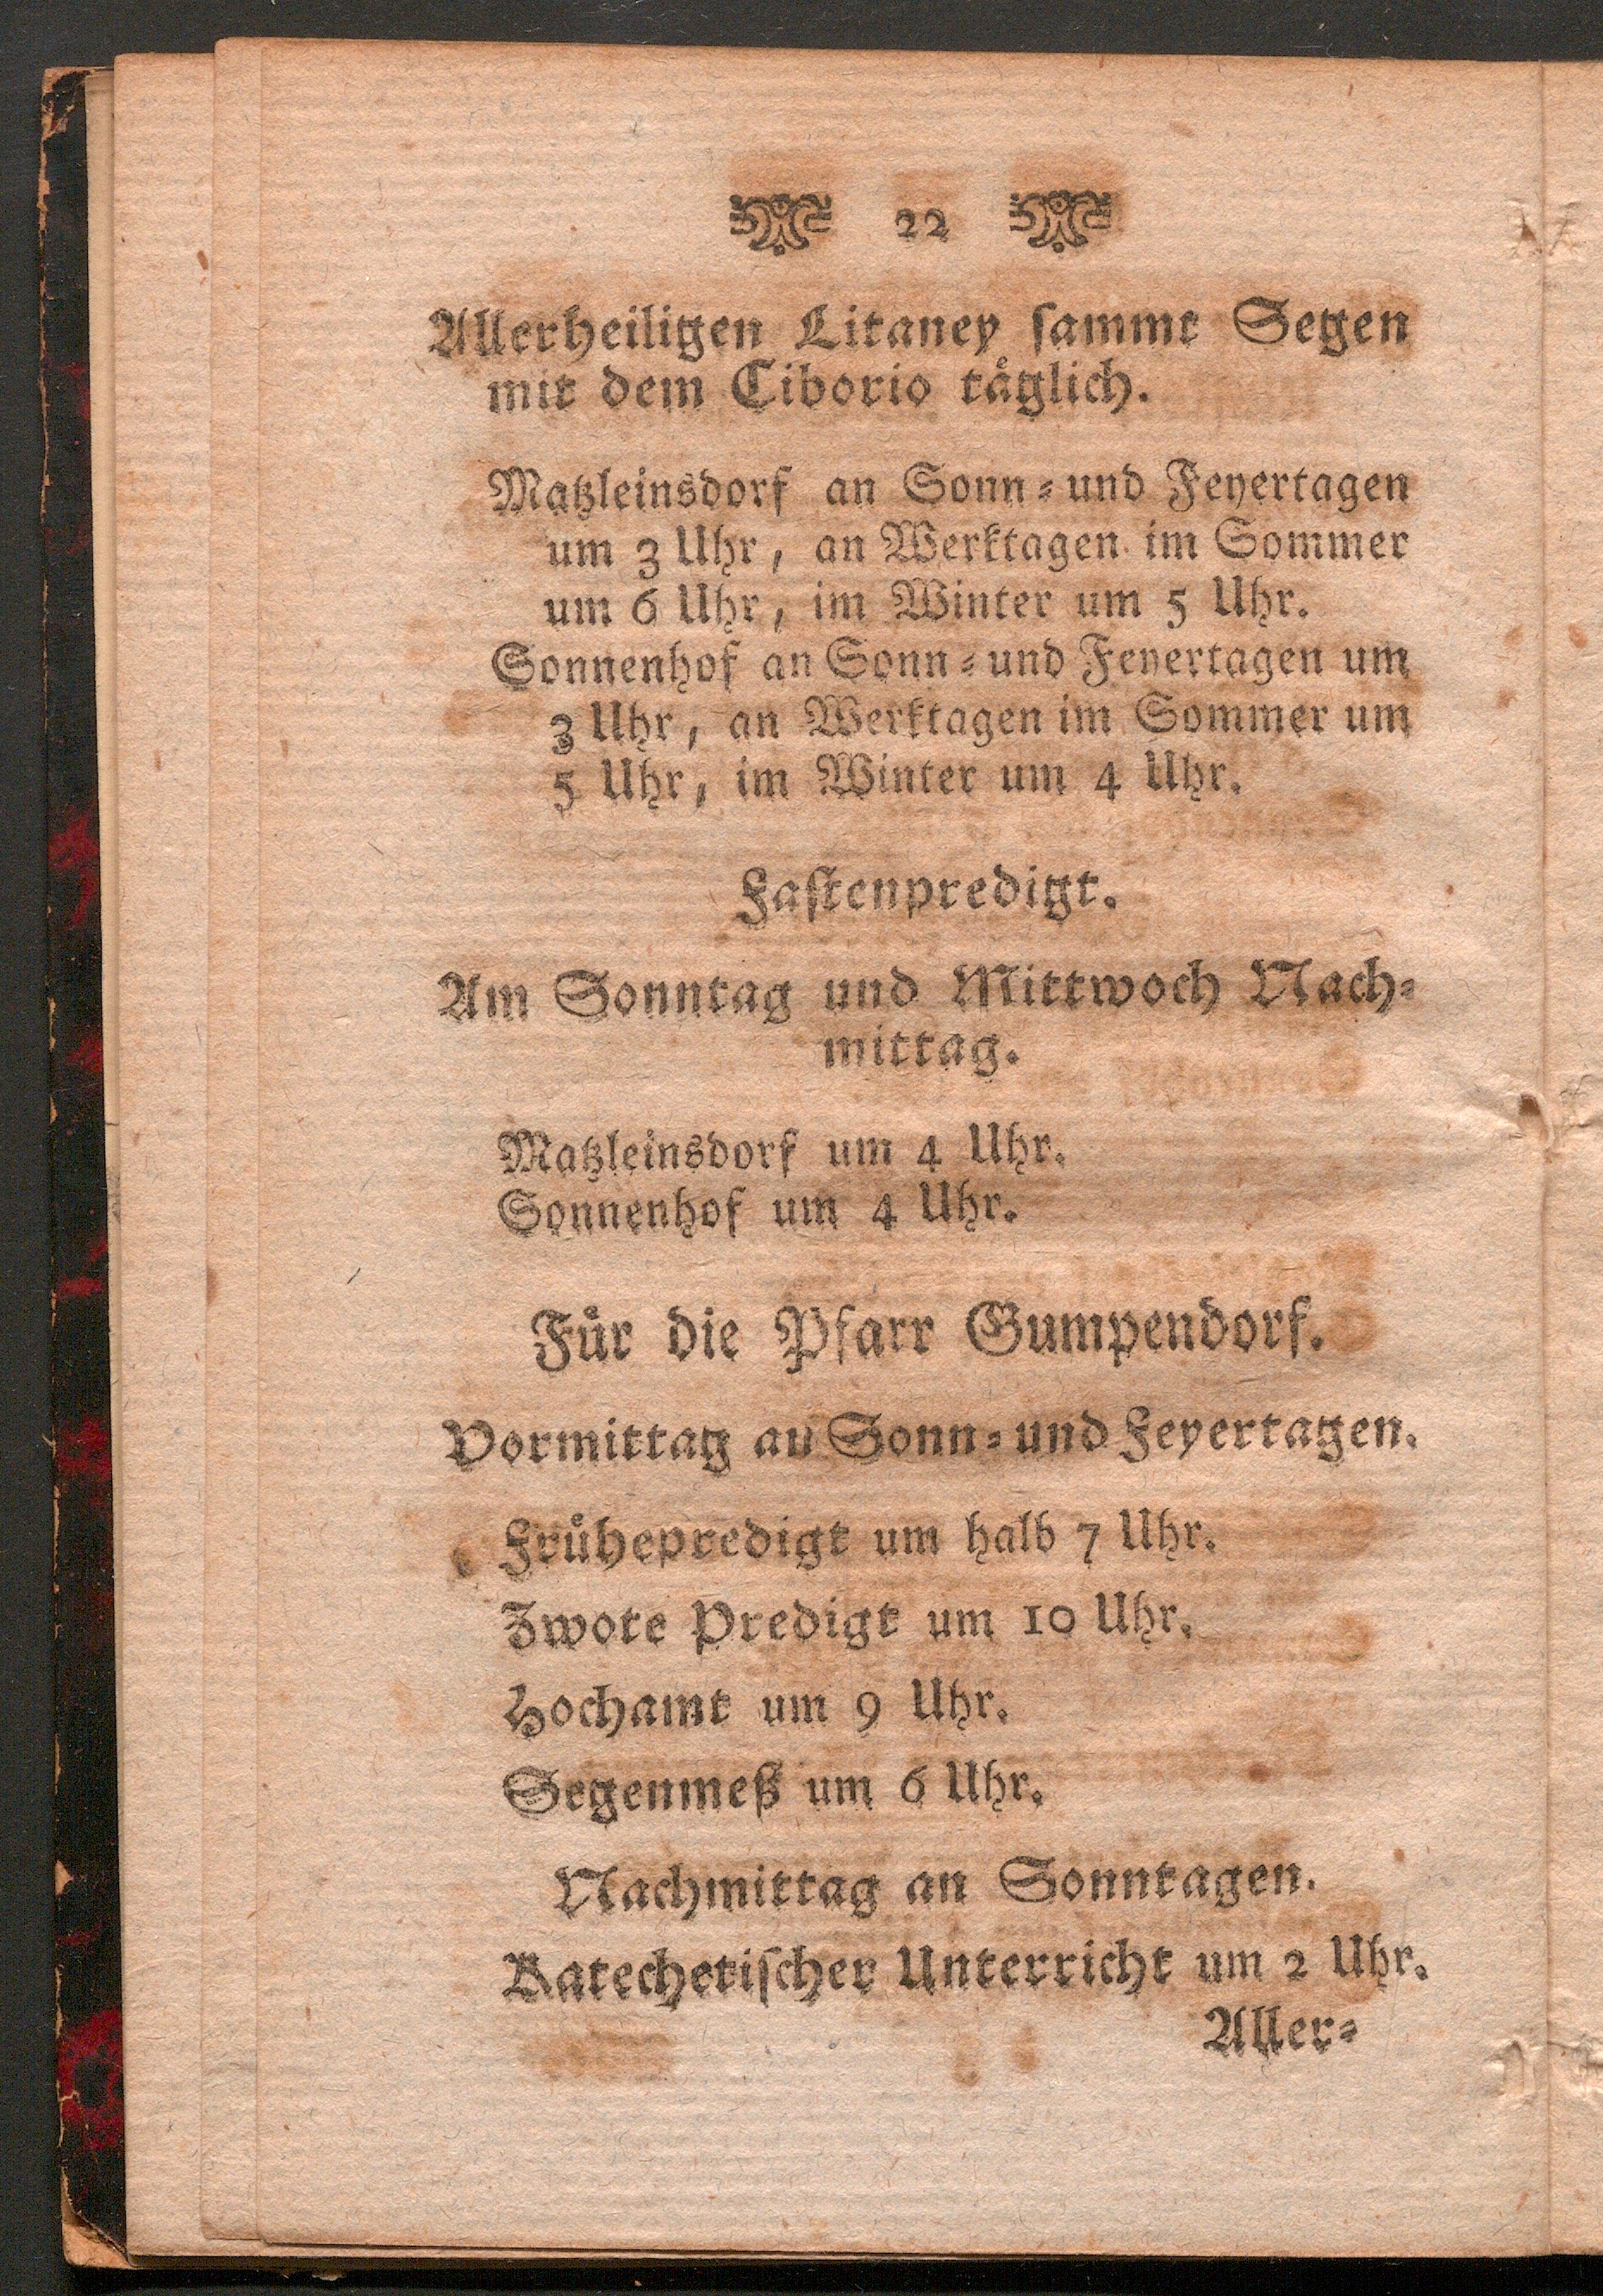 22
Allerheiligen Litaney sammt Segen
mit dem Ciborio täglich.
Matzleinsdorf an Sonn- und Feyertagen
um 3 Uhr, an Werktagen im Sommer
um 6 Uhr, im Winter um 5 Uhr.
Sonnenhof an Sonn- und Feyertagen um
3 Uhr, an Werktagen im Sommer um
5 Uhr, im Winter um 4 Uhr.
Fastenpredigt.
Am Sonntag und Mittwoch Nach-
mittag.
Matzleinsdorf um 4 Uhr.
Sonnenhof um 4 Uhr.
Für die Pfarr Gumpendorf.
Vormittag an Sonn- und Feyertagen.
Frühepredigt um halb 7 Uhr.
Zwote Predigt um 10 Uhr.
Hochamt um 9 Uhr.
Segenmeß um 6 Uhr.
Nachmittag an Sonntagen.
Katechetischer Unterricht um 2 Uhr.
Aller-